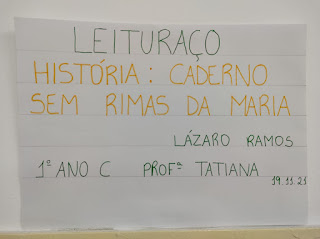 LEITURAÇO
HISTÓRIA: CADERNO
SEM RIMAS DA MARIA
LÁZARO RAMOS
1º ANO C PROFª TATIANA
19.11.21